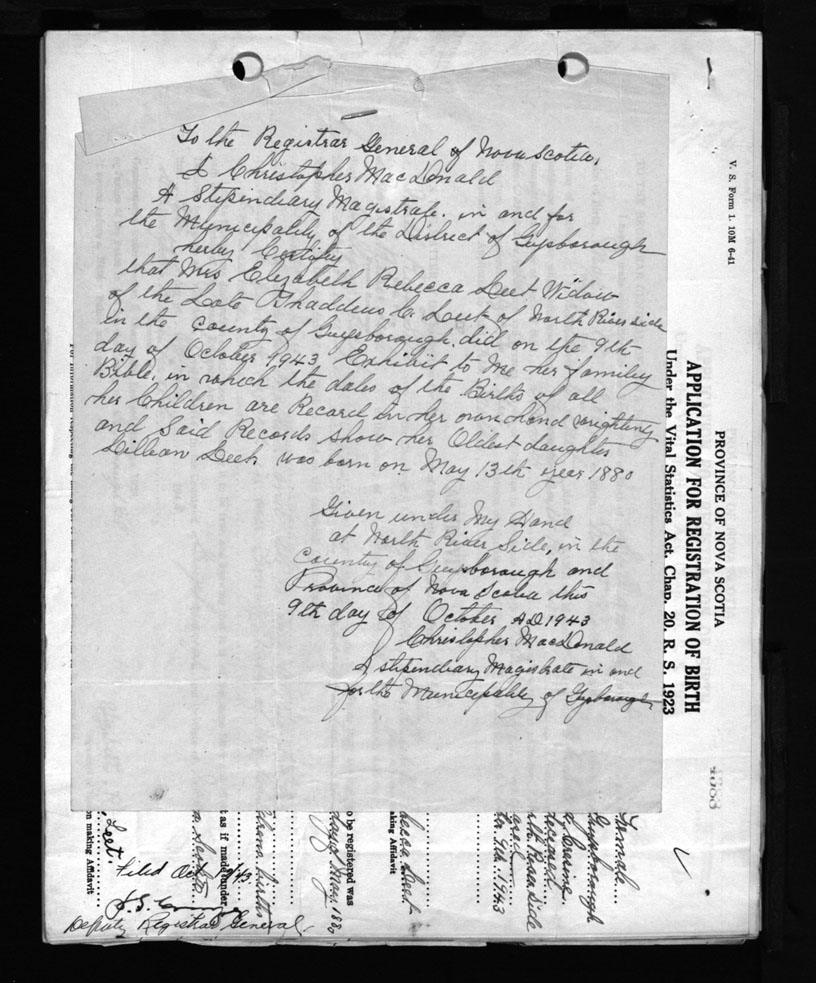 To the Registrar General of Nova Scotia,
I Christopher MacDonald
A Stipindiary Magistrate. in and for
the Municipality of the District of Guysborough
herby Certify
that Mrs Elizabeth Rebecca Leet Widow
of the Late Thaddeus C. Leet of North River side
in the County of Guysborough. did on the 9th
day of October 1943 Exhibit to Me her family
Bible. in which the dates of the Births of all
her Children are Record in her own hand wrighting
and Said Records show her Oldest daughter
Lillian Leet was born on May 13th year 1880
Given under My Hand
at North River Side, in the
County of Guysborough and
Province of Nova Scotia this
9th day of October AD 1943
Christopher MacDonald
A stipendiary Magistrate in and
for the Municipality of Guysborough
V. S. Form 1. 10M 6-41
PROVINCE OF NOVA SCOTIA
APPLICATION FOR REGISTRATION OF BIRTH
Under the Vital Statistics Act, Chap. 20, R. S. 1923
Female
Guysborough
9th, 1943
o be registered was
aking Affidavit
births
t as if made under
Leet.
on making Affidavit
Filed Oct
Deputy Registrar General